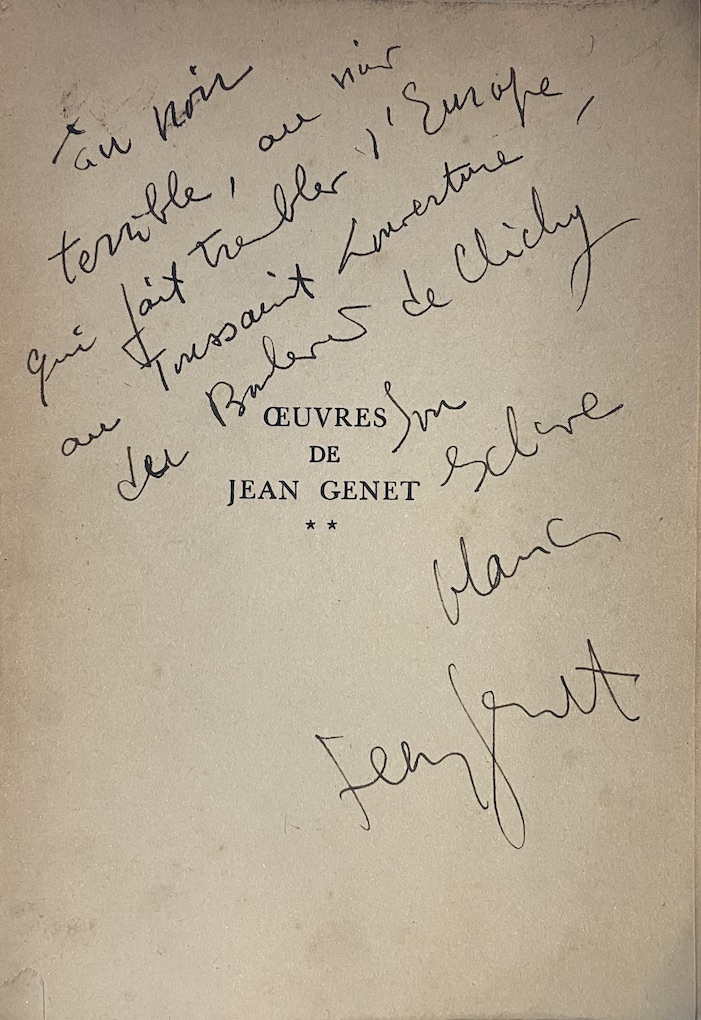 au noir
terrible, au noir
qui fait trembler l'Europe,
au Toussaint Louverture
du Boulevard de Clichy
Son
esclave
blanc
Jean Genet
ŒUVRES
DE
JEAN GENET
**